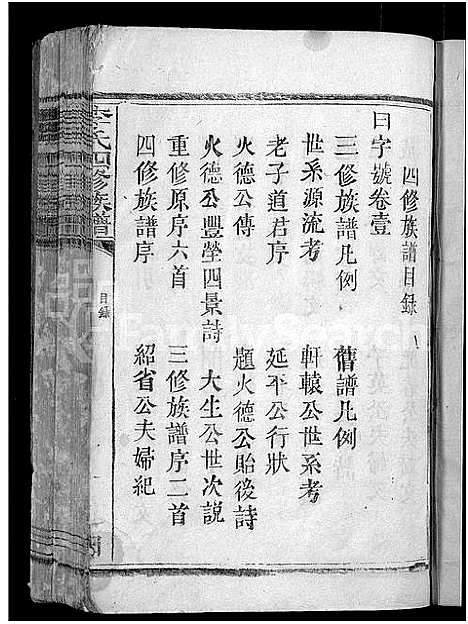 四修族譜目錄
日字號卷壹
三修族譜凡例 舊譜凡例
世系源流考 軒轅公世系考
老子道君序 延平公行狀
火德公傳 題火德公貽後詩
火德公豐瑩四景詩 大生公世次說
重修原序六首 三修族譜序二首
四修族譜序 紹省公夫婦紀
李氏四修族譜
目錄